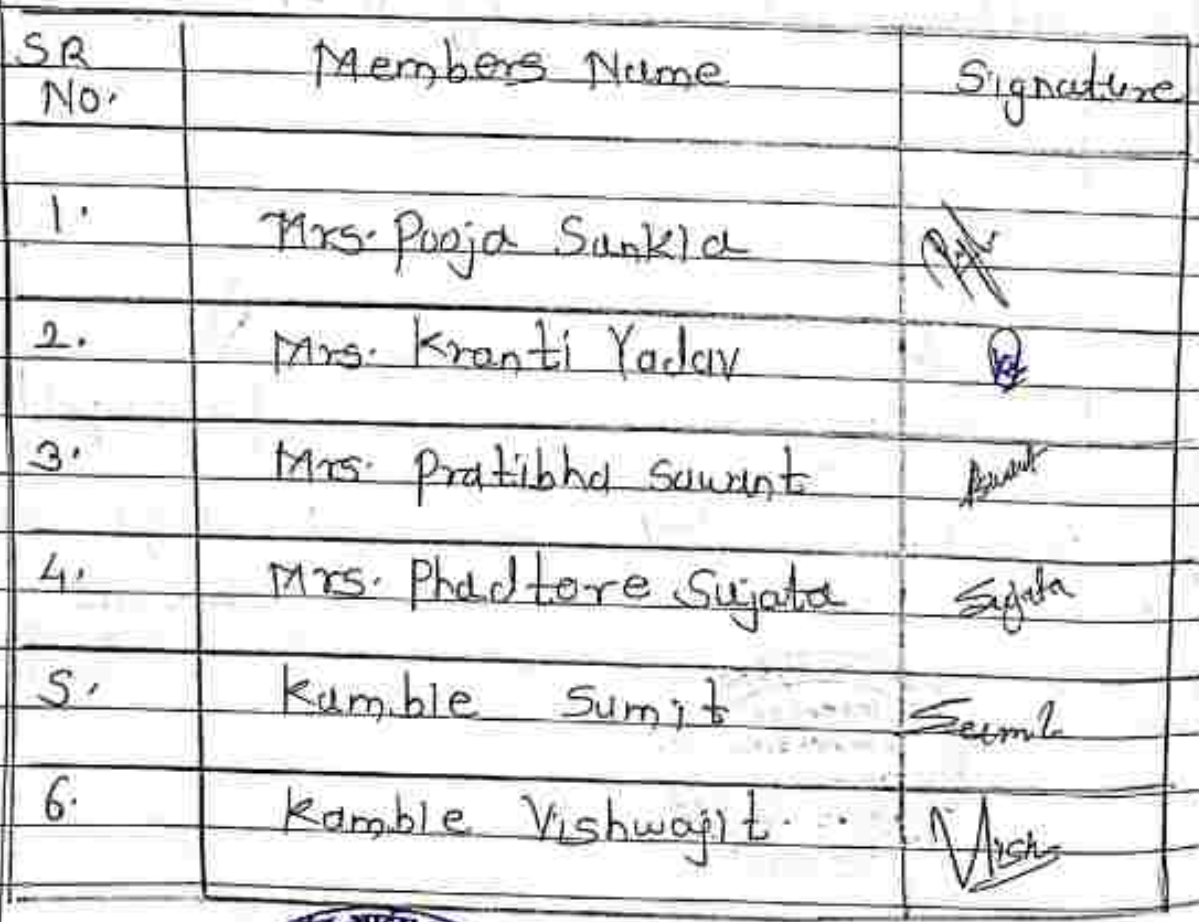 SR No. Members Name Signature
1. Mrs. Pooja Sankla
2. Mrs. Kranti Yadav
3. Mrs. Pratibha Sawant
4. Mrs. Phadtore Sujata Sujata
5. Kamble Sumit Sumit
6. Kamble Vishwajit Vish